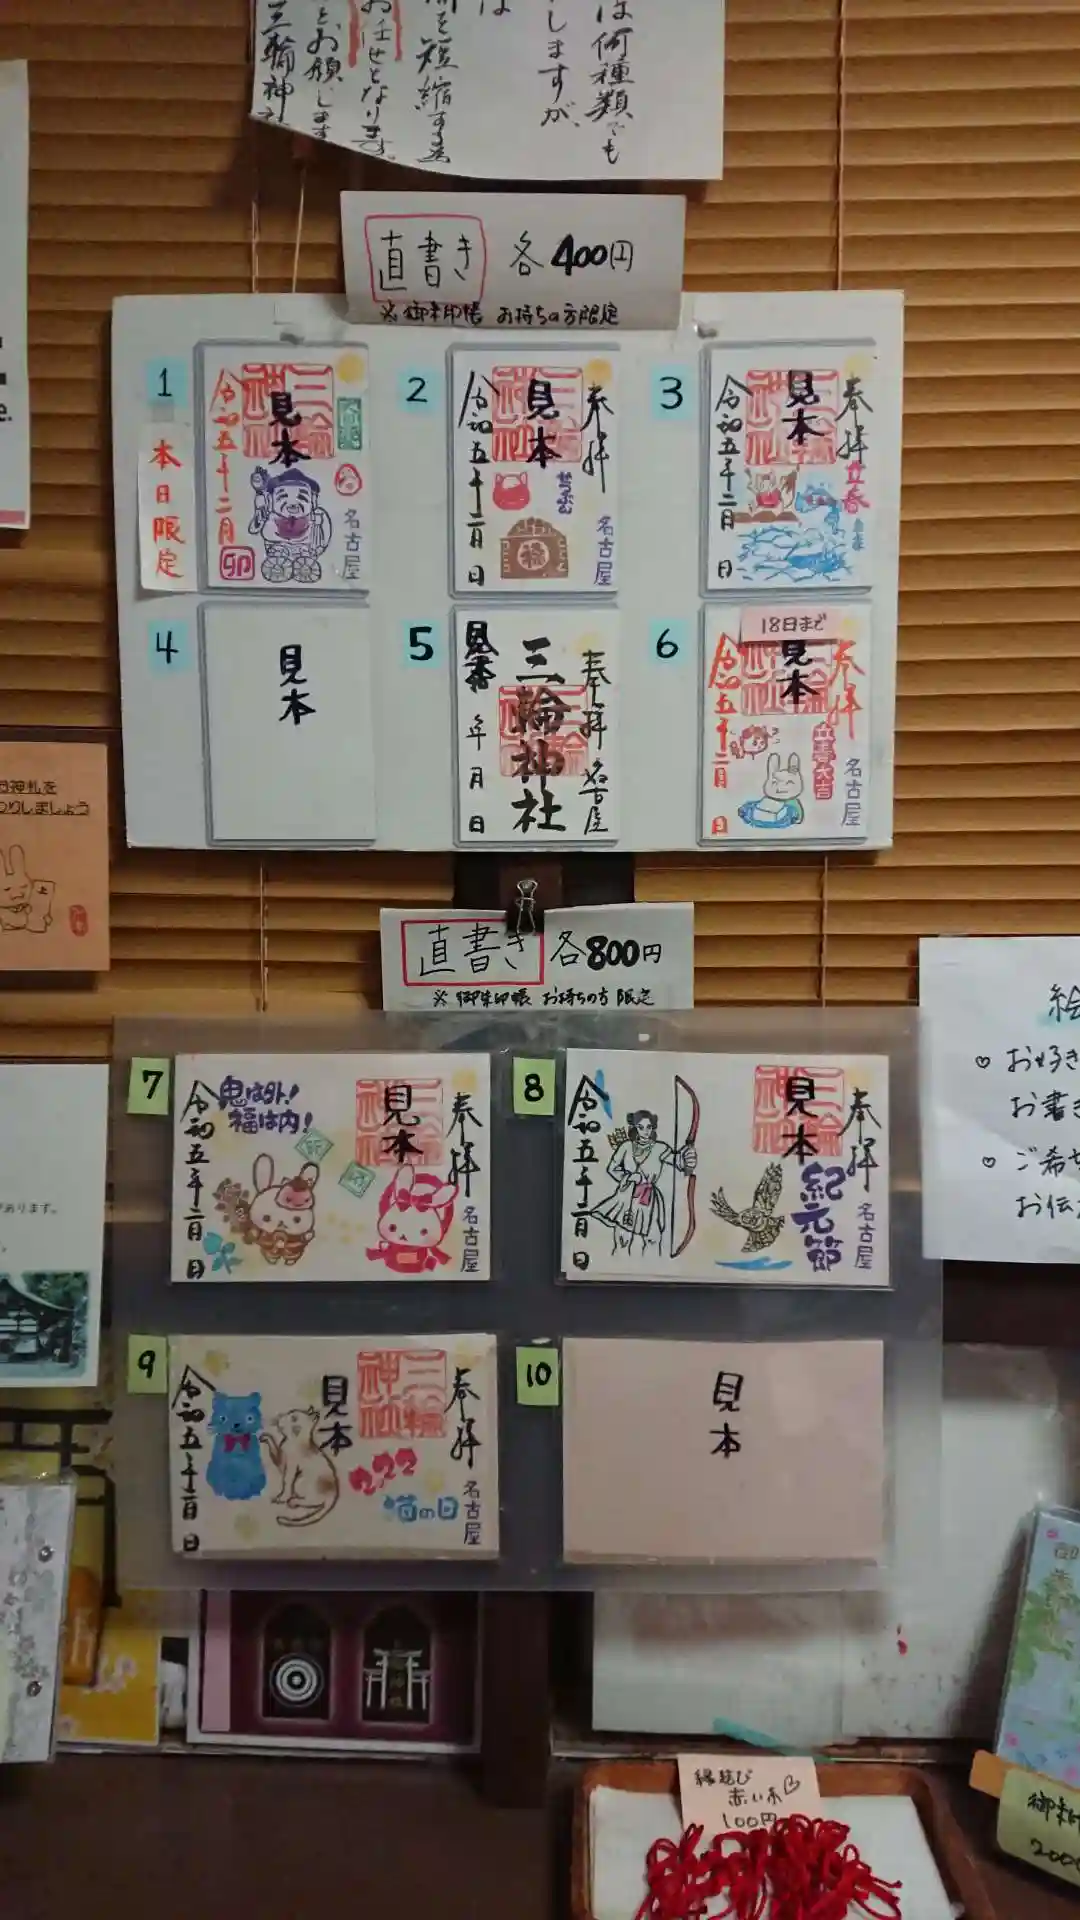 は何種類でも
しますが、
は
を短縮する為
お任せとなります。
とお願いします
三輪神社
直書き 各400円
※御朱印帳 お持ちの方限定
1
本日限定
見本
三輪神社
令和五年二月
卯
名古屋
2
奉拝
見本
三輪神社
せつぶん
福
名古屋
令和五年二月 日
3
奉拝
見本
三輪神社
立春
令和五年二月 日
4
見本
5
奉拝 名古屋
三輪神社
見本
年 月 日
6
18日まで
奉拝
見本
立春大吉
名古屋
令和五年二月 日
直書き 各800円
※御朱印帳 お持ちの方限定
7
奉拝
見本
三輪神社
鬼は外!
福は内!
名古屋
令和五年二月 日
8
奉拝
見本
三輪神社
紀元節
名古屋
令和五年二月 日
9
奉拝
三輪神社
見本
222
猫の日
名古屋
令和五年二月 日
10
見本
神札を
りしましょう
上
あります。
絵
♡ お好き
お書き
♡ ご希
お伝え
縁結び
赤い糸♡
100円
御朱印
200